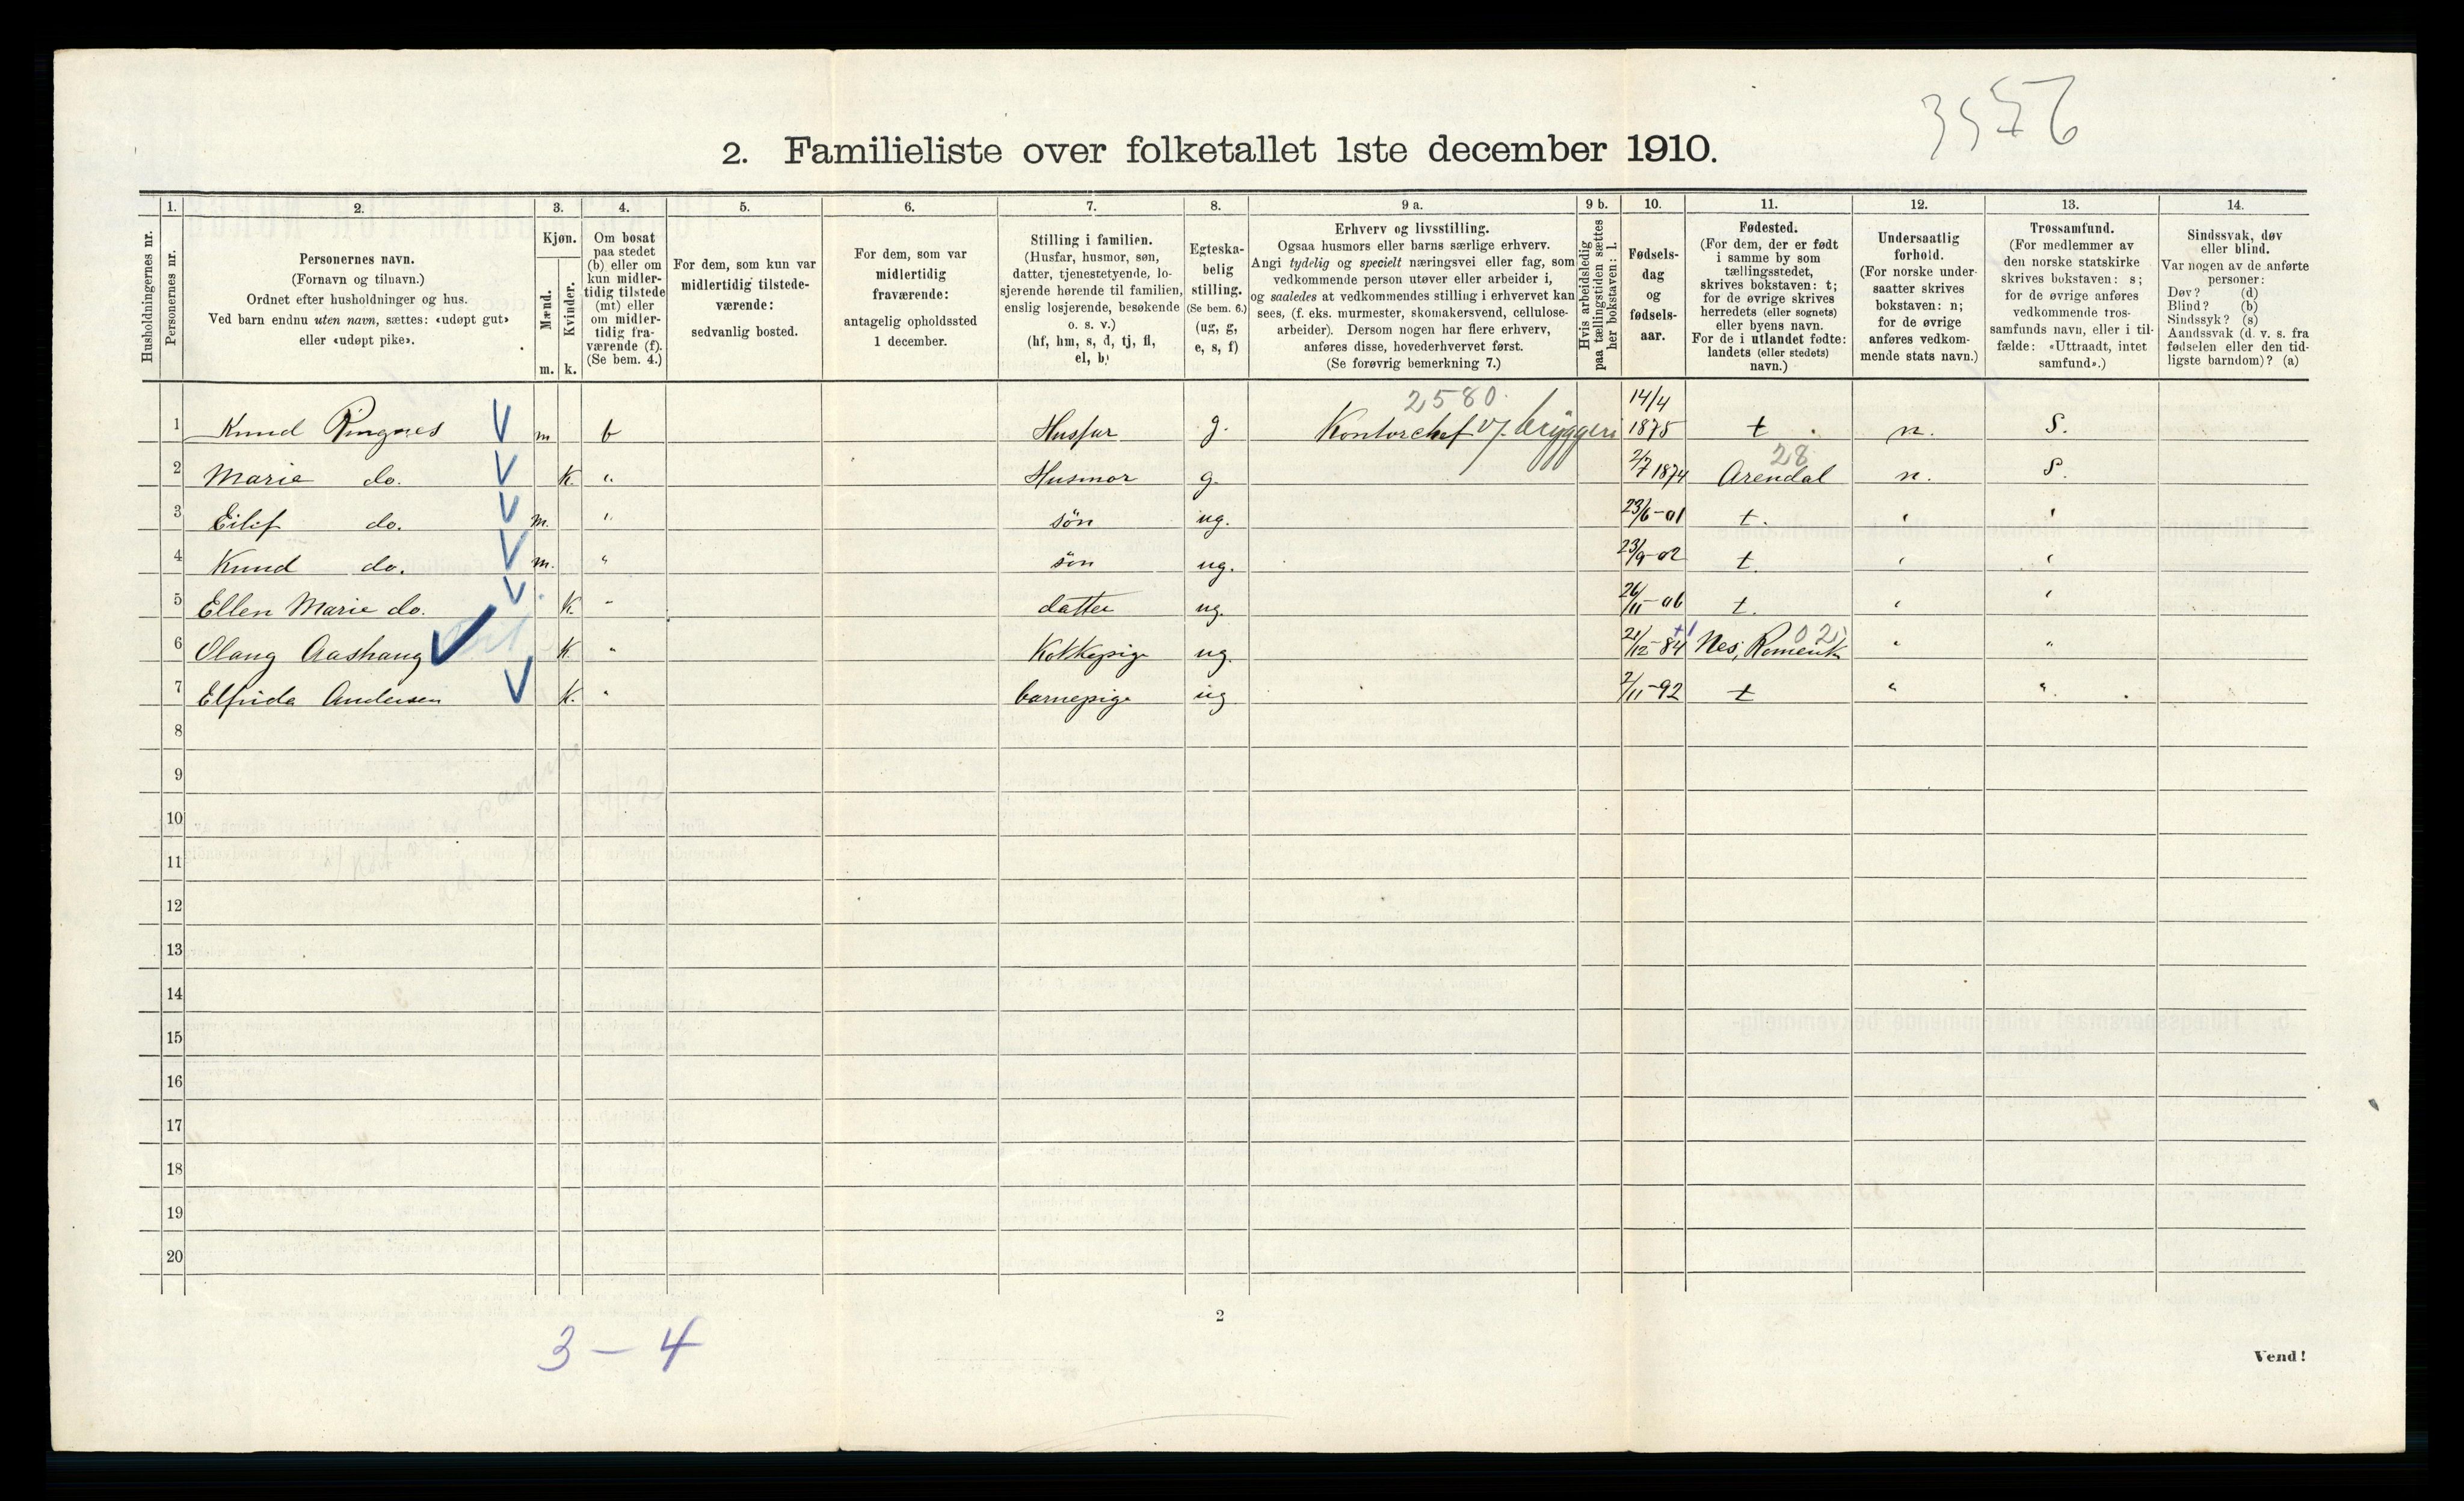 3576
2. Familieliste over folketallet 1ste december 1910.
Husholdningernes nr.
1. Personernes nr.
2. Personernes navn.
(Fornavn og tilnavn.)
Ordnet efter husholdninger og hus.
Ved barn endnu uten navn, sættes: «udøpt gut»
eller «udøpt pike».
3. Kjøn.
Mænd. m.
Kvinder. k.
4. Om bosat
paa stedet
(b) eller om
kun midler-
tidig tilstede
(mt) eller
om midler-
tidig fra-
værende (f).
(Se bem. 4.)
5. For dem, som kun var
midlertidig tilstede-
værende:
sedvanlig bosted.
6. For dem, som var
midlertidig
fraværende:
antagelig opholdssted
1 december.
7. Stilling i familien.
(Husfar, husmor, søn,
datter, tjenestetyende, lo-
sjerende hørende til familien,
enslig losjerende, besøkende
o. s. v.)
(hf, hm, s, d, tj, fl,
el, b)
8. Egteska-
belig
stilling.
(Se bem. 6.)
(ug, g,
e, s, f)
9 a. Erhverv og livsstilling.
Ogsaa husmors eller barns særlige erhverv.
Angi tydelig og specielt næringsvei eller fag, som
vedkommende person utøver eller arbeider i,
og saaledes at vedkommendes stilling i erhvervet kan
sees, (f. eks. murmester, skomakersvend, cellulose-
arbeider). Dersom nogen har flere erhverv,
anføres disse, hovederhvervet først.
(Se forøvrig bemerkning 7.)
9 b. Hvis arbeidsledig
paa tællingstiden sættes
her bokstaven: l.
10. Fødsels-
dag
og
fødsels-
aar.
11. Fødested.
(For dem, der er født
i samme by som
tællingsstedet,
skrives bokstaven: t;
for de øvrige skrives
herredets (eller sognets)
eller byens navn.
For de i utlandet fødte:
landets (eller stedets)
navn.)
12. Undersaatlig
forhold.
(For norske under-
saatter skrives
bokstaven: n;
for de øvrige
anføres vedkom-
mende stats navn.)
13. Trossamfund.
(For medlemmer av
den norske statskirke
skrives bokstaven: s;
for de øvrige anføres
vedkommende tros-
samfunds navn, eller i til-
fælde: «Uttraadt, intet
samfund».)
14. Sindssvak, døv
eller blind.
Var nogen av de anførte
personer:
Døv? (d)
Blind? (b)
Sindssyk? (s)
Aandssvak (d. v. s. fra
fødselen eller den tid-
ligste barndom)? (a)
2580.
1 Knud Ringnes m b Husfar g. Kontorchef v/ bryggeri 14/4 1875 t. n. S.
28
2 Marie do. K. " Husmor g. 2/7 1874 Arendal n. S.
3 Eilif do. m. " søn ug. 23/6-01 t. " "
4 Knud do. m. " søn ug. 23/9-02 t. " "
5 Ellen Marie do. K. " datter ug. 26/11-06 t. " "
6 Olaug Aashaug K " Kokkepige ug. 21/12-84 Nes, Romerik 02 " "
7 Elfrida Andersen K. " barnepige ug 2/11-92 t " "
8
9
10
11
12
13
14
15
16
17
18
19
20
2
3 - 4
Vend!